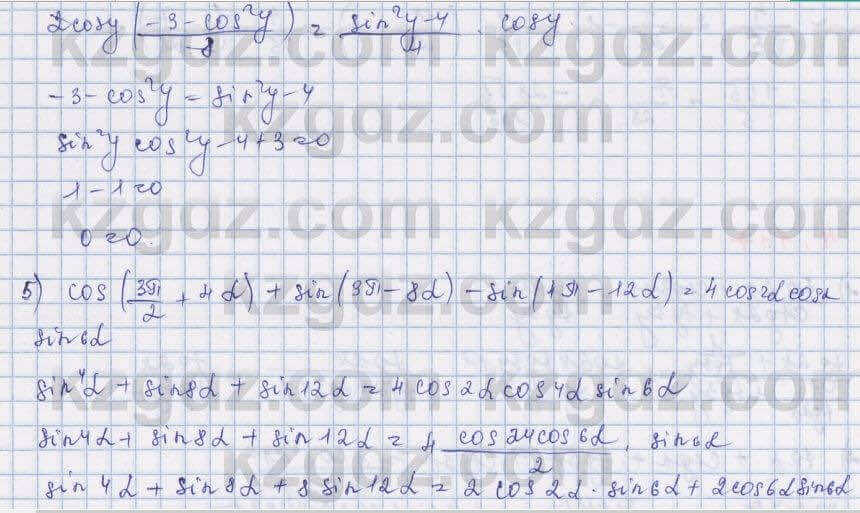 2cosy (-3-cos²y / -8) = sin²y-4 / 4 · cosy
-3-cos²y = sin²y-4
sin²y cos²y-4+3=0
1-1=0
0=0.
5) cos (3π/2 + 4α) + sin (3π-8α) - sin (4π-12α) = 4 cos2α cosα
sin6α
sin⁴α + sin8α + sin12α = 4 cos 2α cos 4α sin 6α
sin4α + sin8α + sin12α = 4 cos24cos6α / 2 · sin6α
sin 4α + sin 8α + 8 sin12α = 2 cos 2α · sin6α + 2cos6αsin6α
kzgdz.com kzgdz.com
kzgdz.com
kzgdz.com kzgdz.com
kzgdz.com
kzgdz.com kzgdz.com
kzgdz.com